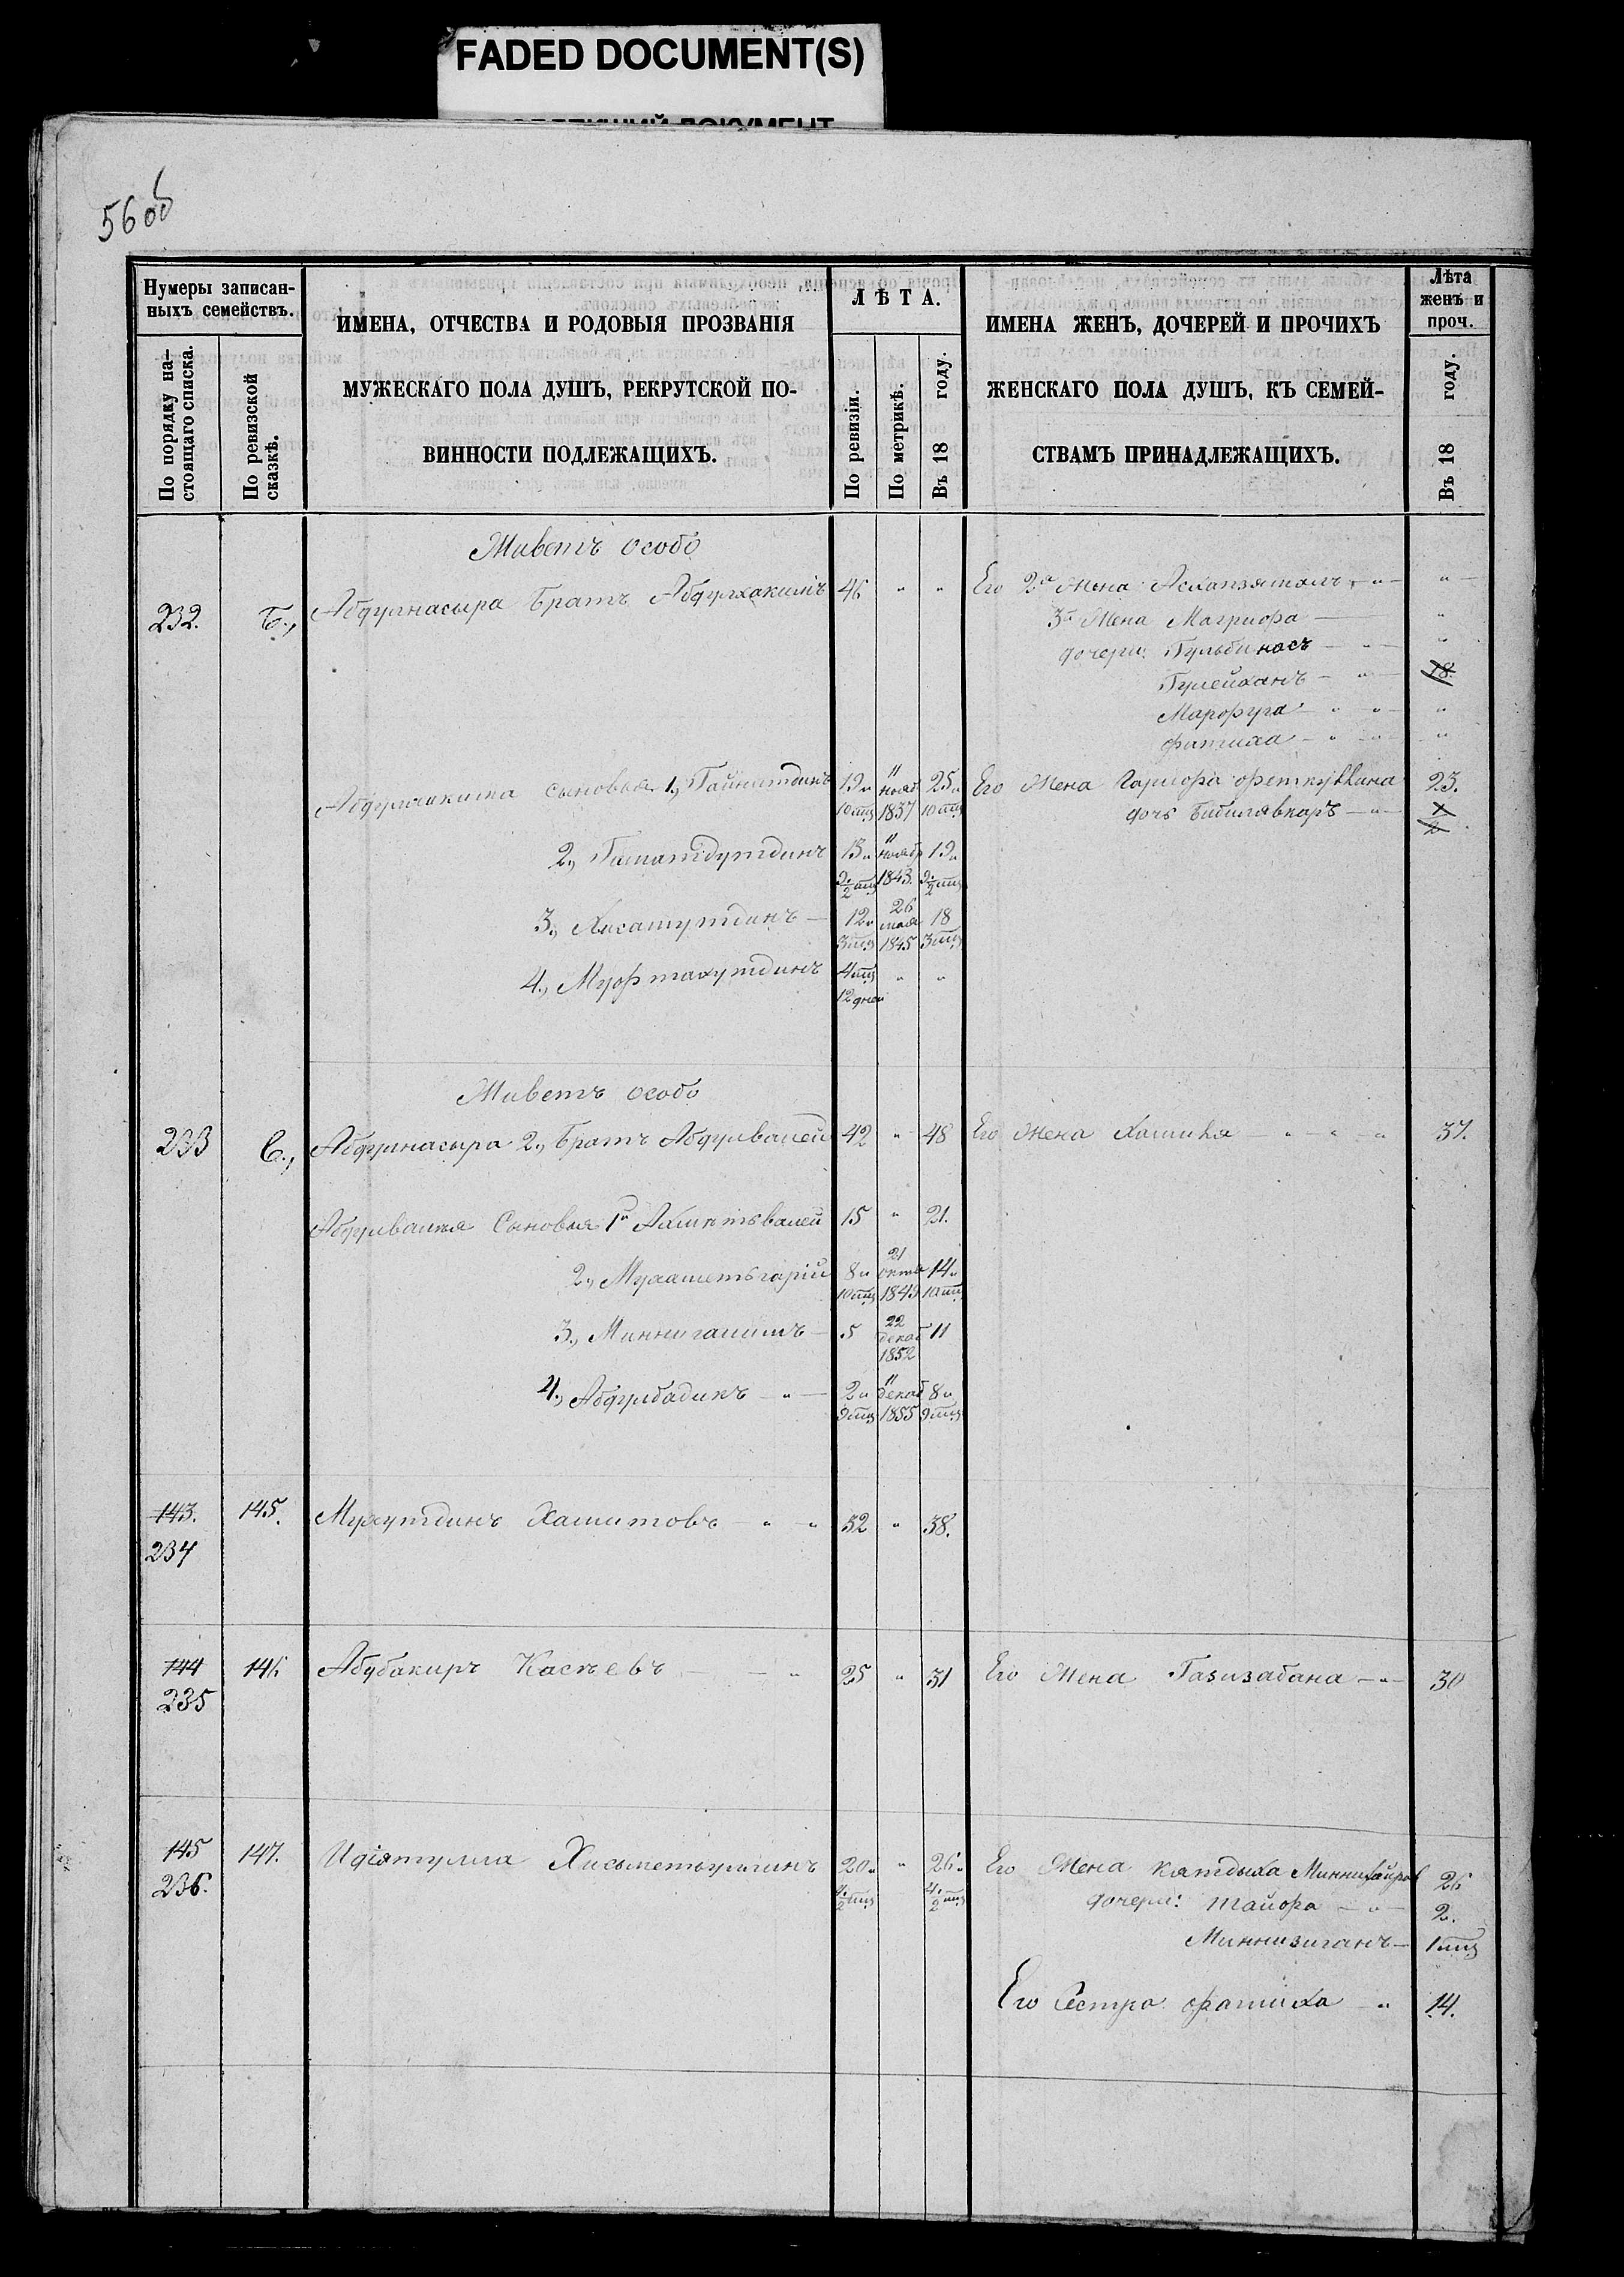 FADED DOCUMENT(S)
56 об
Нумеры записан-
ныхъ семействъ.
По порядку на-
стоящаго списка.
По ревизской
сказкѣ.
ИМЕНА, ОТЧЕСТВА И РОДОВЫЯ ПРОЗВАНІЯ
МУЖЕСКАГО ПОЛА ДУШЪ, РЕКРУТСКОЙ ПО-
ВИННОСТИ ПОДЛЕЖАЩИХЪ.
ЛѢТА.
По ревизіи.
По метрикѣ.
Въ 18 году.
ИМЕНА ЖЕНЪ, ДОЧЕРЕЙ И ПРОЧИХЪ
ЖЕНСКАГО ПОЛА ДУШЪ, КЪ СЕМЕЙ-
СТВАМЪ ПРИНАДЛЕЖАЩИХЪ.
Лѣта
женъ и
проч.
Въ 18 году.
Живетъ особо
232. Б., Абдулнасыра братъ Абдулхакимъ 46 " " Его 2я жена "
3я Жена Магриофа "
дочери: Гульбинасъ "
Гулейханъ 18.
Марофуга "
фатиха "
Абдулхакима сыновья 1, Гайнитдинъ 19 11 25 Его Жена 23.
10 мцъ нояб 1837 10 мцъ дочь Бибилявкаръ
2, 13 11 ноябр 1843. 19
3, Хисамутдинъ 12 26 мая 1845 18
3 мцъ 3 мцъ
4, Муфтахутдинъ 4 мцъ " "
12 дней
Живетъ особо
233 в., Абдулнасыра 2, братъ Абдулвалей 42 " 48 Его Жена 37.
Абдулвалея Сыновья 1й Ахметвалей 15 " 21.
2, Мухаметьгарій 8 21 октя 1843 14
10 мцъ 10 мцъ
3, Миннигалимъ 5 22 декаб 1852 11
4, Абдулбадикъ 2 11 декаб 1855 8
9 мцъ 9 мцъ
143. 145. Мухутдинъ Хамитовъ " " 32 " 38.
234
144 146 Абубакиръ Касѣевъ " 25 " 31 Его Жена Газизабана 30
235
145 147. Идіятулла Хисьметуллинъ 20 " 26 Его Жена 26
236. дочери: Тайфа 2.
Миннизиганъ 1 мцъ
Его Сестра фатиха " 14.